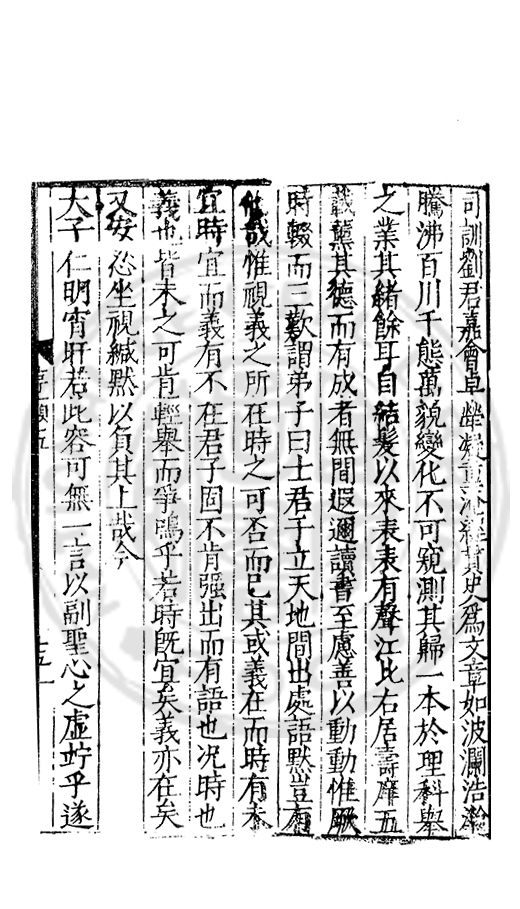 司訓劉君嘉會卓犖凝重淹經貫史爲文章如波瀾浩瀚
騰沸百川千態萬貌變化不可窺測其歸一本於理科舉
之業其緒餘耳自結髮以來表表有聲江北右居壽庠五
載薰其德而有成者無間遐邇讀書至慮善以動動惟厥
時輟而三歎謂弟子曰士君子立天地間出處語默豈有
他哉惟視義之所在時之可否而已其或義在而時有未
宜時宜而義有不在君子固不肯强出而有語也况時也
義也皆未之可肯輕舉而爭鳴乎若時既宜矣義亦在矣
又安忍坐視緘默以負其上哉今
天子仁明宵旰若此容可無一言以副聖心之虛竚乎遂